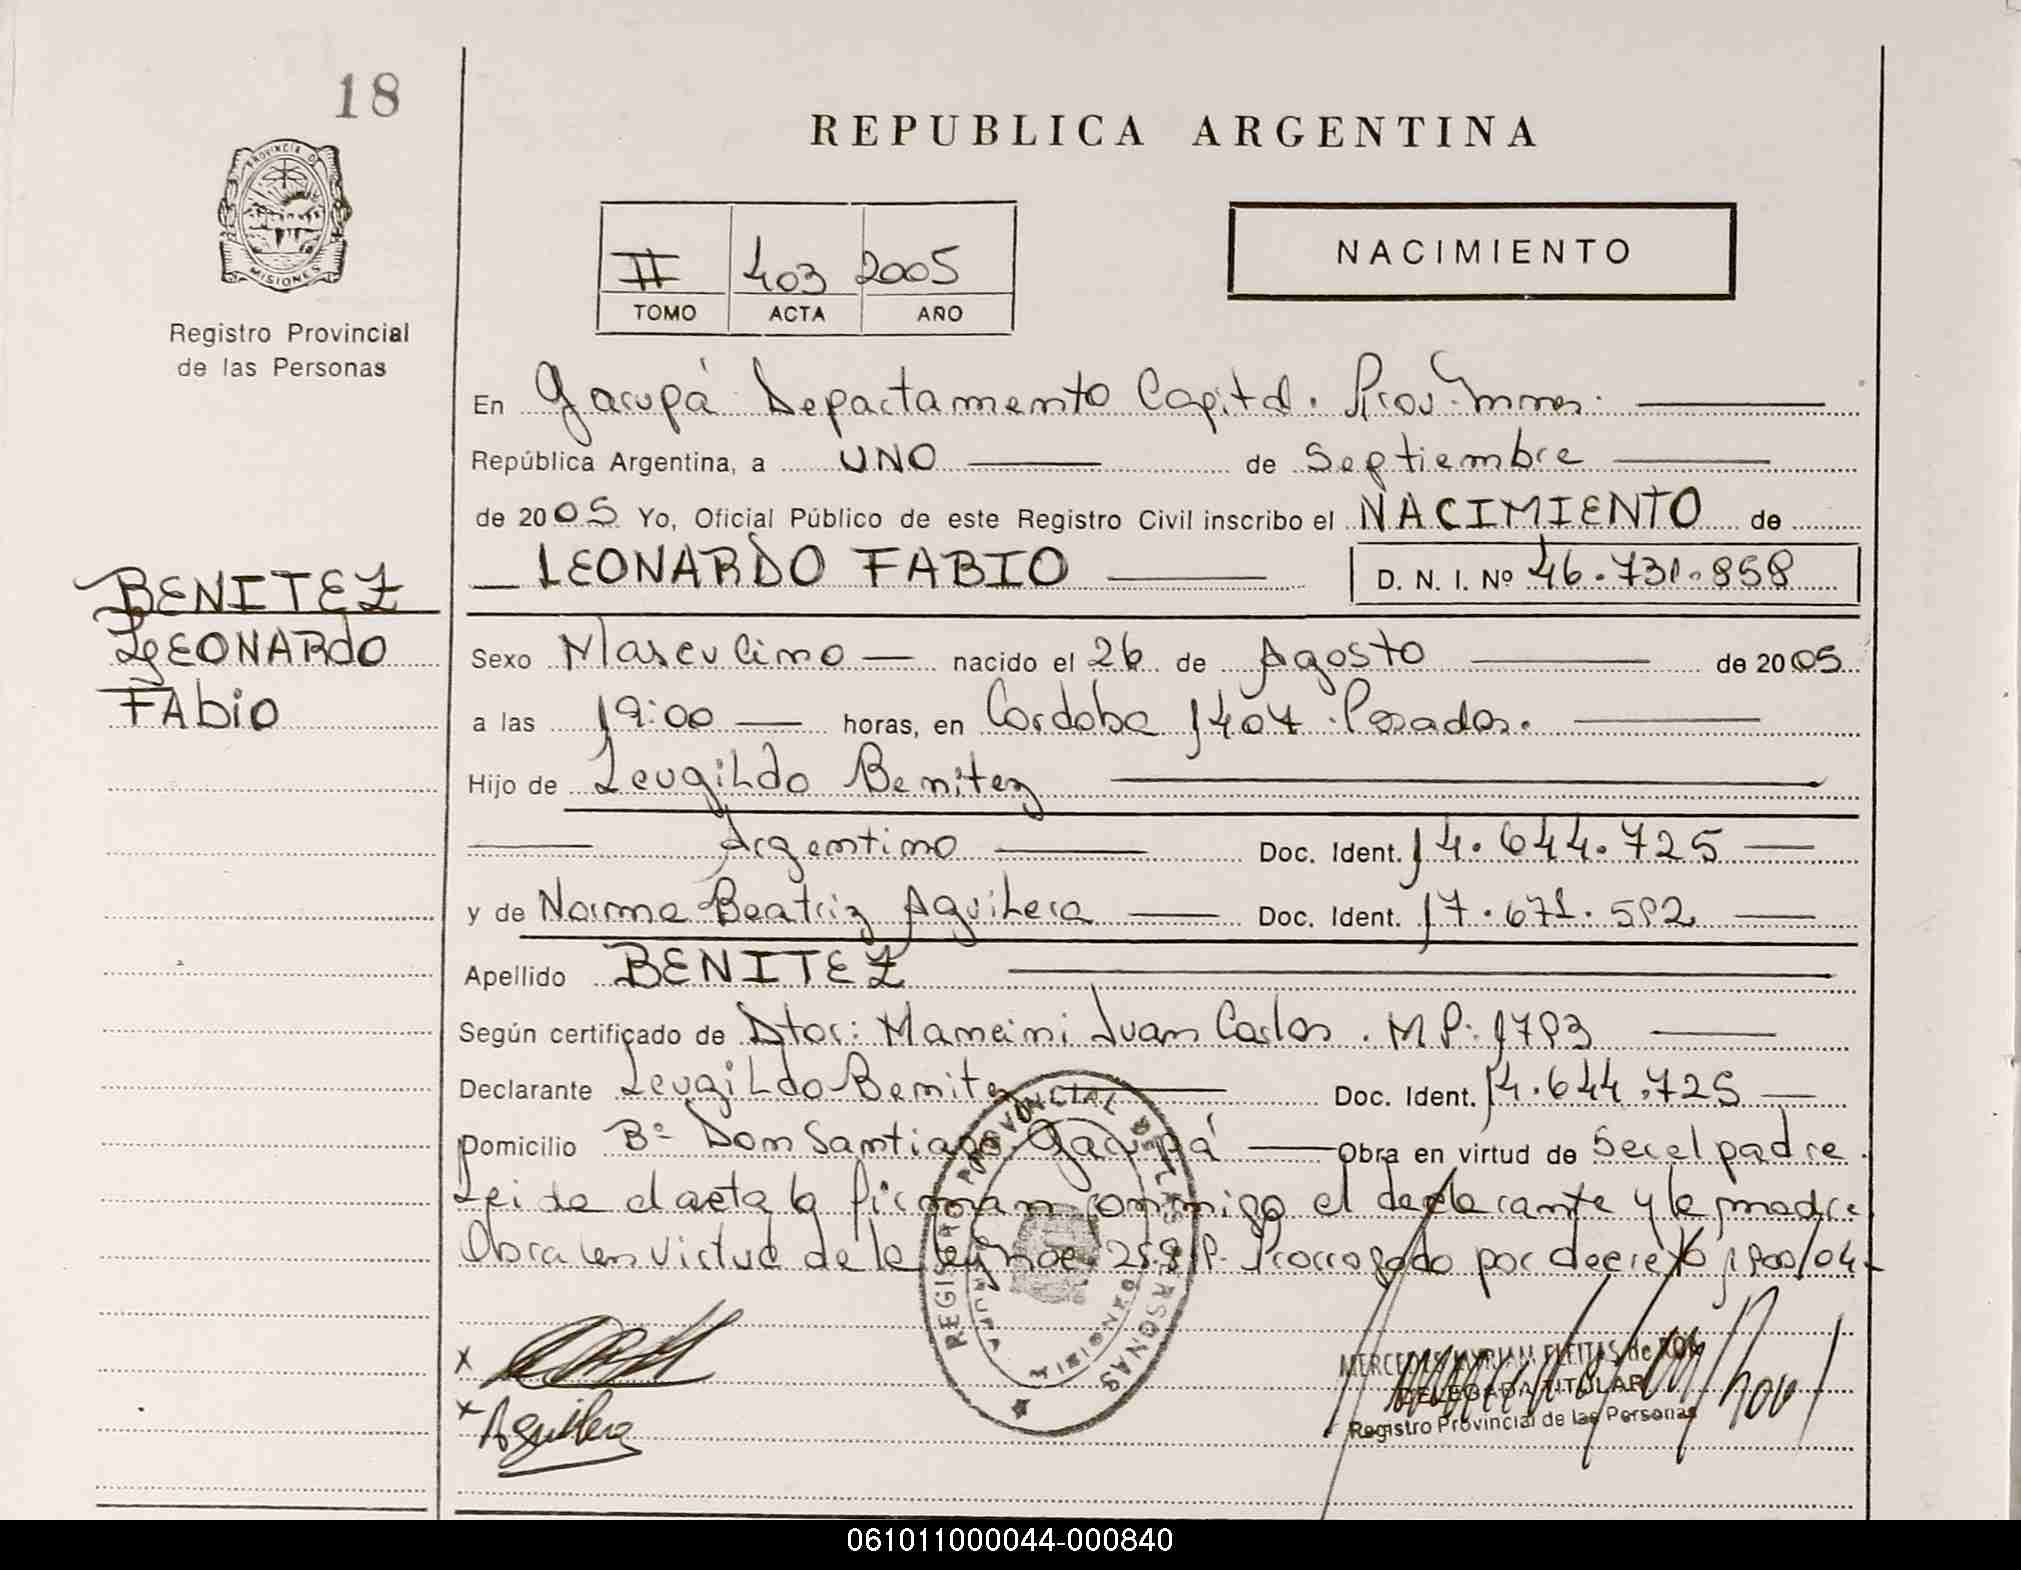 18
REPUBLICA ARGENTINA
PROVINCIA D
MISIONES
Registro Provincial
de las Personas
II 403 2005
TOMO ACTA AÑO
NACIMIENTO
En Garupá Departamento Capital. Prov.
República Argentina, a UNO de Septiembre
de 2005 Yo, Oficial Público de este Registro Civil inscribo el NACIMIENTO de
LEONARDO FABIO D. N. I. Nº 46.731.858
BENITEZ
LEONARDO
FAbio
Sexo Masculino nacido el 26 de Agosto de 2005
a las 19:00 horas, en Cordoba 1407 Posadas.
Hijo de Leugildo Benitez
Argentino Doc. Ident. 14.644.725
y de Norma Beatriz Aguilera Doc. Ident. 17.671.592
Apellido BENITEZ
Según certificado de Dtor: Mancini Juan Carlos. M P: 1793
Declarante Leugildo Benitez Doc. Ident. 14.644.725
Domicilio Bº Don Santiago Garupá Obra en virtud de Ser el padre.
Leida el acta la firman conmigo el declarante y la madre
Obra en virtud de la ley 25.819. Prorrogado por decreto 1900/04
REGISTRO PROVINCIAL DE LAS PERSONAS
x
x Aguilera
MERCEDES MYRIAM FLEITAS de
DELEGADA TITULAR
Registro Provincial de las Personas
061011000044-000840